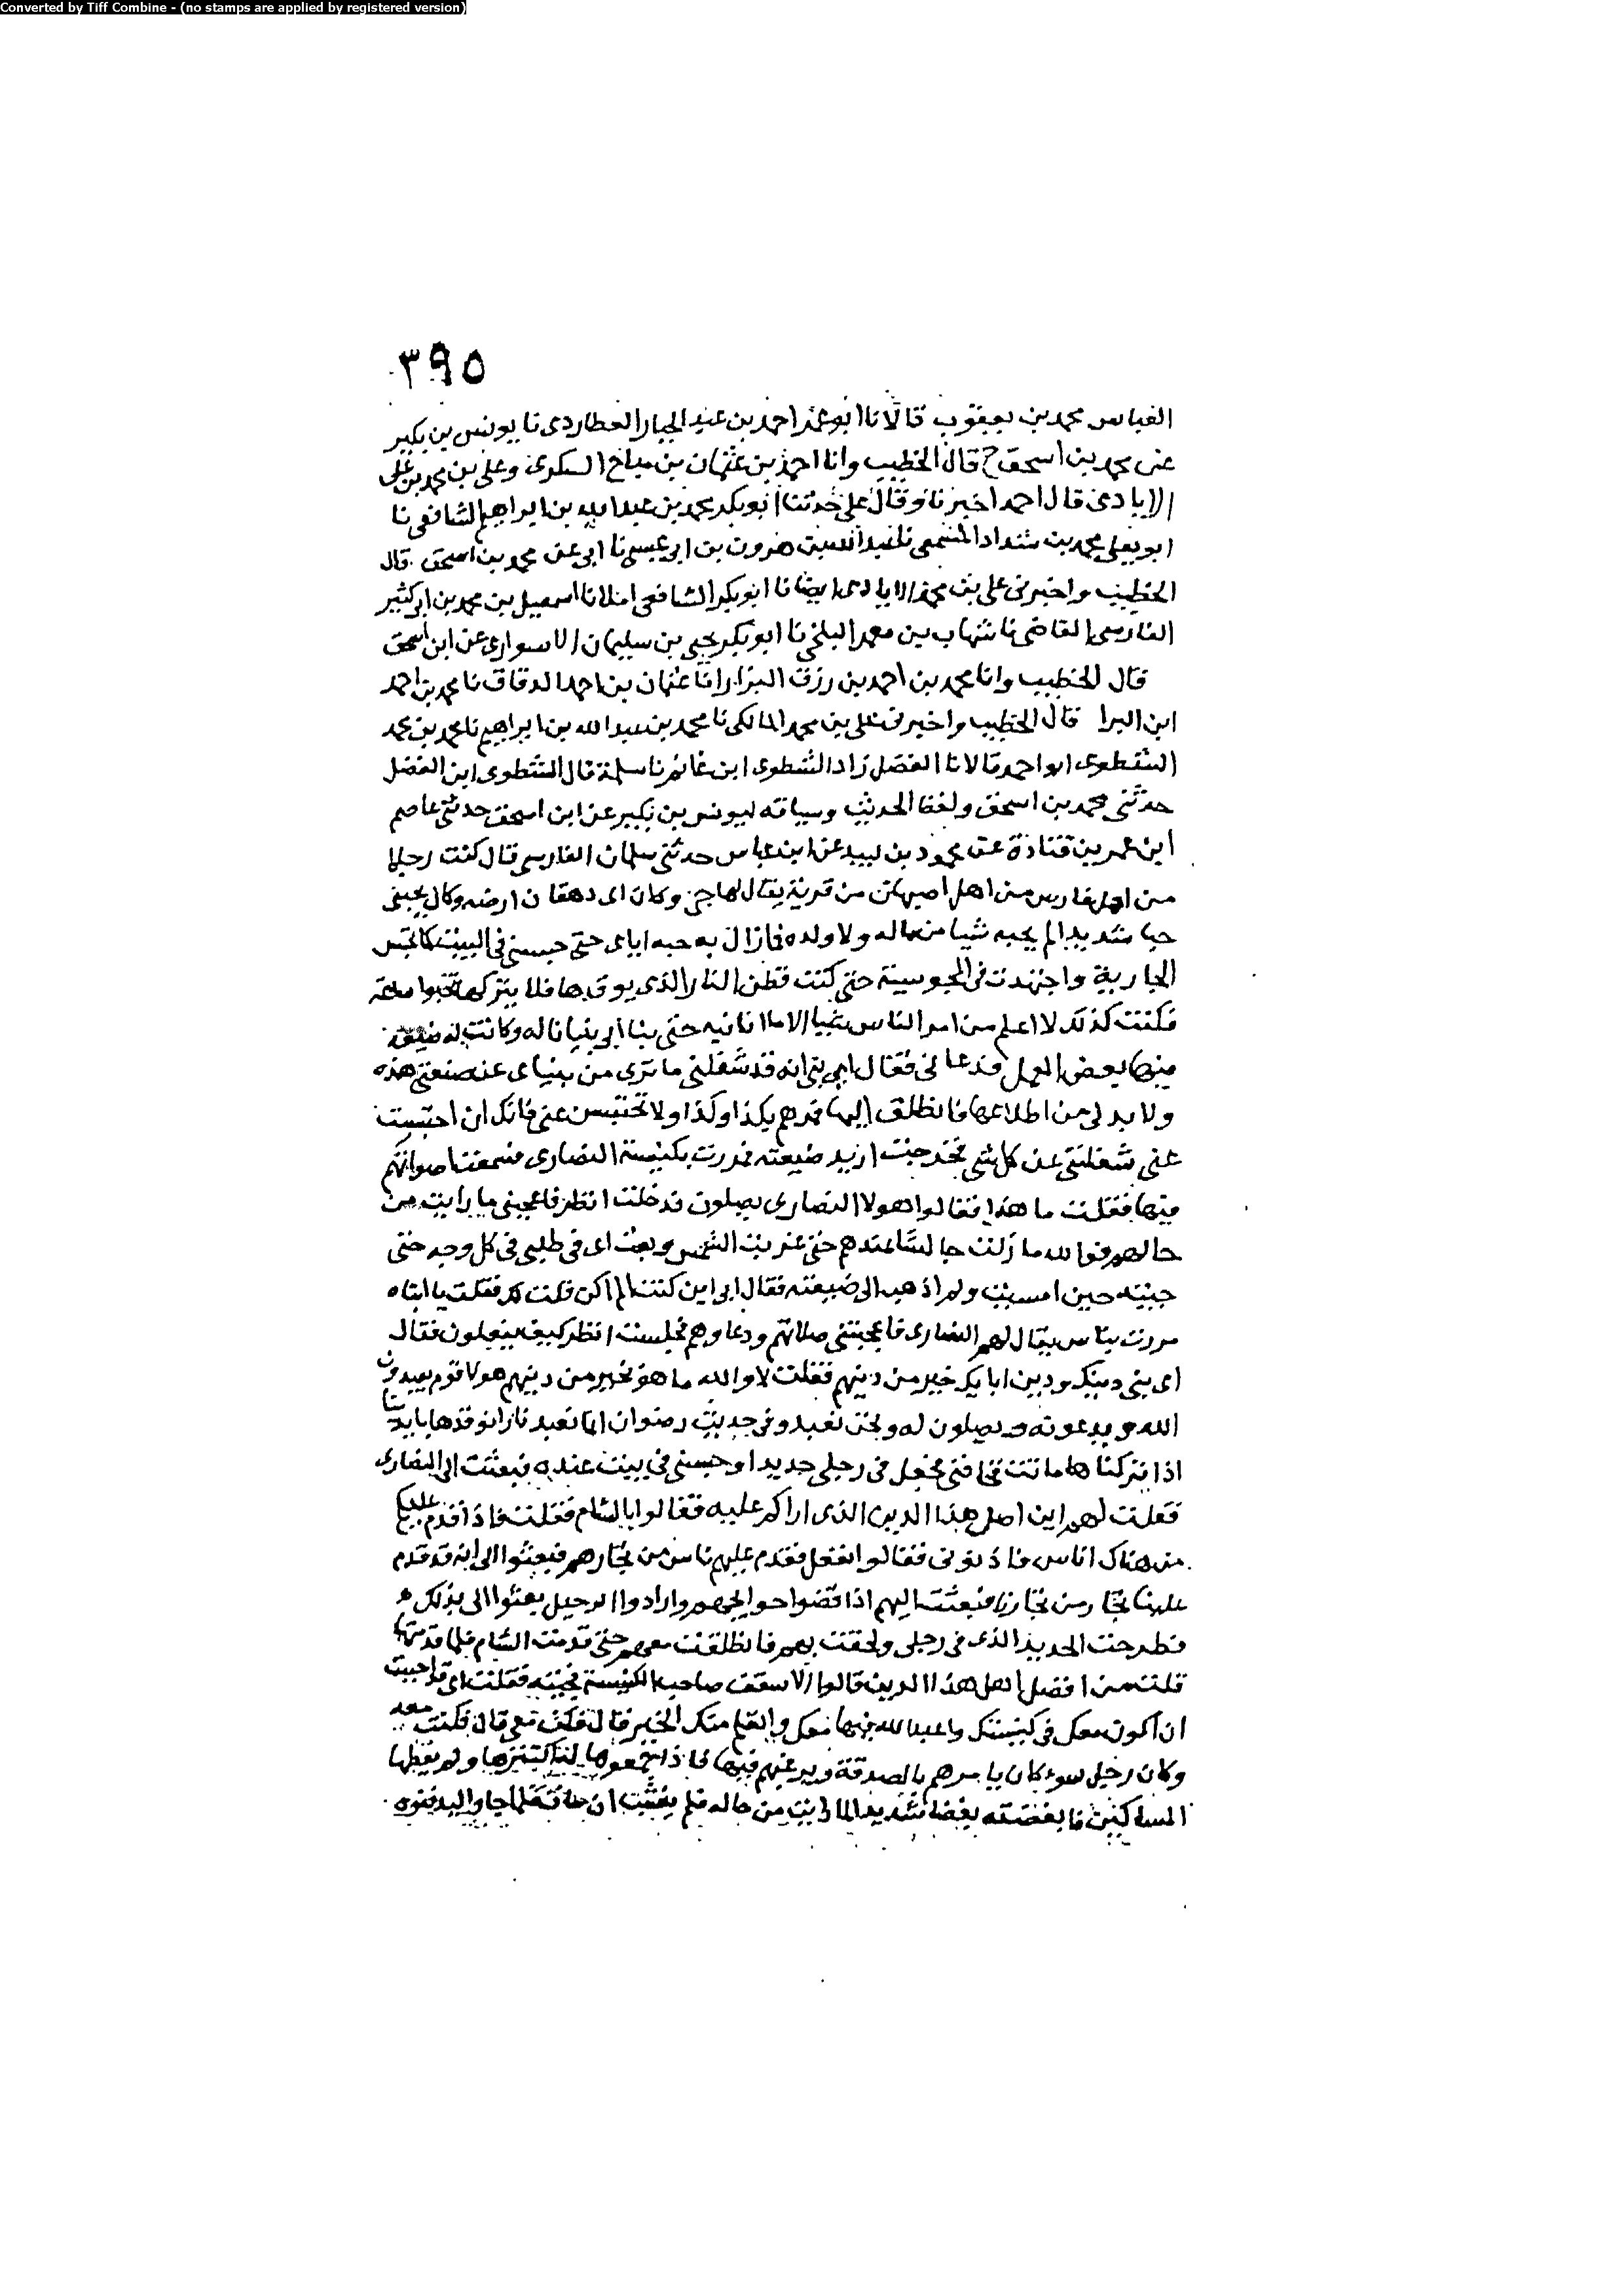 Converted by Tiff Combine - (no stamps are applied by registered version)
٣٩٥
العباس محمد بن يعقوب قالا نا ابو عمر احمد بن عبد الجبار العطاردى نا يونس بن بكير
عن محمد بن اسحق ح قال الخطيب وانا احمد بن عثمان بن مياح السكرى وعلى بن محمد بن على
الايادى قال احمد اخبرنا وقال على حدثنا ابو بكر محمد بن عبد الله بن ابراهيم الشافعى نا
ابو يعلى محمد بن شداد المسمعى نا عبد الله بن هرون بن ابى عيسى نا ابى عن محمد بن اسحق قال
الخطيب واخبرنى على بن محمد الايادى ايضا نا ابو بكر الشافعى املانا اسمعيل بن محمد بن ابى كثير
الفارسى القاضى نا شهاب بن معمر البلخى نا ابو بكر يحيى بن سليمان الاسوارى عن ابن اسحق
قال الخطيب وانا محمد بن احمد بن رزق البزار انا عثمان بن احمد الدقاق نا محمد بن احمد
ابن البرا قال الخطيب واخبرنى على بن محمد المالكى نا محمد بن عبد الله بن ابراهيم نا محمد بن محمد
الشطوى ابو احمد قالا نا الفضل زاد الشطوى ابن غانم نا سلمة قال الشطوى ابن الفضل
حدثنى محمد بن اسحق ولفظ الحديث وسياقه ليونس بن بكير عن ابن اسحق حدثنى عاصم
ابن عمر بن قتادة عن محمود بن لبيد عن ابن عباس حدثنى سلمان الفارسى قال كنت رجلا
من اهل فارس من اهل اصبهان من قرية يقال لها جى وكان ابى دهقان ارضه وكان يحبنى
حبا شديدا لم يحبه شيا من ماله ولا ولده فما زال به حبه اياى حتى حبسنى فى البيت كما تحبس
الجارية واجتهدت فى المجوسية حتى كنت قطن النار الذى يوقدها فلا يتركها تخبوا ساعة
فكنت كذلك لا اعلم من امر الناس شيا الا ما انا فيه حتى بنا ابى بنيانا له وكانت له ضيعة
فيها بعض العمل فدعانى فقال اى بنى انه قد شغلنى ما ترى من بنياى عن ضيعتى هذه
ولا بد لى من اطلاعها فانطلق اليها فمرهم بكذا وكذا ولا تحتبس عنى فانك ان احتبست
عنى شغلتنى عن كل شى فخرجت اريد ضيعته فمررت بكنيسة النصارى فسمعت اصواتهم
فيها فقلت ما هذا فقالوا هولا النصارى يصلون فدخلت انظر فاعجبنى ما رايت من
حالهم فوالله ما زلت جالسا عندهم حتى غربت الشمس وبعث ابى فى طلبى فى كل وجه حتى
جيته حين امسيت ولم اذهب الى ضيعته فقال ابى اين كنت الم اكن قلت لك فقلت يا ابتاه
مررت بناس يقال لهم النصارى فاعجبتنى صلاتهم ودعاوهم فجلست انظر كيف يفعلون فقال
اى بنى دينك ودين ابايك خير من دينهم فقلت لا والله ما هو بخير من دينهم هولا قوم يعبدون
الله ويدعونه ويصلون له ونحن نعبد وفى حديث رضوان انما نعبد نارا نوقدها بايدينا
اذا تركناها ماتت فخافنى فجعل فى رجلى حديدا وحبسنى فى بيت عنده فبعثت الى النصارى
فقلت لهم اين اصل هذا الدين الذى اراكم عليه فقالوا بالشام فقلت فاذا قدم عليكم
من هناك اناس فاذنونى فقالوا نفعل فقدم عليهم ناس من تجارهم فبعثوا الى انه قد قدم
علينا تجار من تجارنا فبعثت اليهم اذا قضوا حوايجهم وارادوا الرحيل بعثوا الى بذلك
فطرحت الحديد الذى فى رجلى ولحقت بهم فانطلقت معهم حتى قدمت الشام فلما قدمتها
قلت من افضل اهل هذا الدين قالوا الاسقف صاحب الكنيسة فجيته فقلت انى قد احببت
ان اكون معك فى كنيستك واعبد الله فيها معك واتعلم منك الخير قال فكن معى قال فكنت معه
وكان رجل سوء كان يامرهم بالصدقة ويرغبهم فيها فاذا جمعوها اليه اكتنزها ولم يعطها
المساكين فابغضته بغضا شديدا لما رايت من حاله فلم ينشب ان مات فلما جاوا ليدفنوه